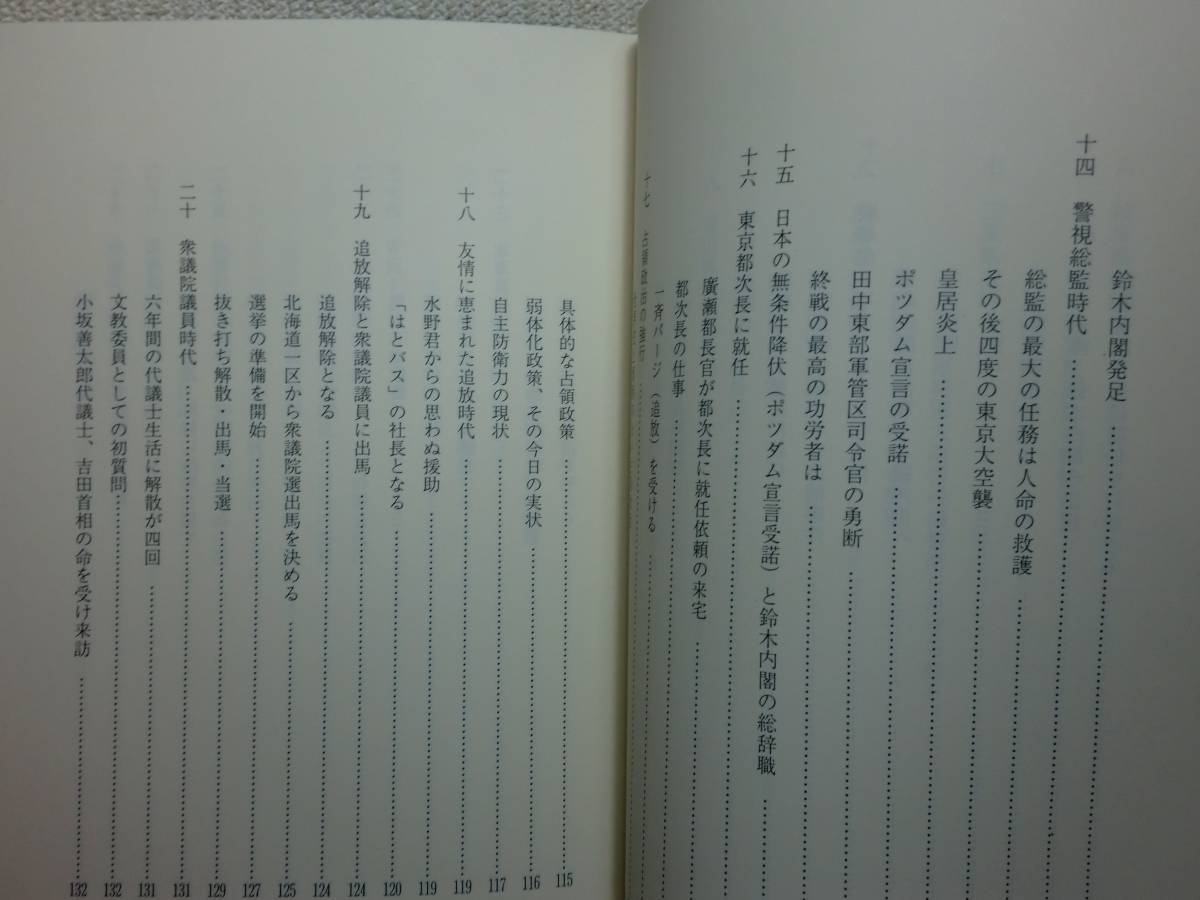 鈴木内閣発足
十四 警視総監時代
総監の最大の任務は人命の救護
その後四度の東京大空襲
皇居炎上
ポツダム宣言の受諾
田中東部軍管区司令官の勇断
終戦の最高の功労者は
十五 日本の無条件降伏（ポツダム宣言受諾）と鈴木内閣の総辞職
十六 東京都次長に就任
廣瀬都長官が都次長に就任依頼の来宅
都次長の仕事
一斉パージ（追放）を受ける
十七 占領政治の強行
具体的な占領政策 115
弱体化政策、その今日の実状 116
自主防衛力の現状 117
十八 友情に恵まれた追放時代 119
水野君からの思わぬ援助 119
「はとバス」の社長となる 120
十九 追放解除と衆議院議員に出馬 124
追放解除となる 124
北海道一区から衆議院選出馬を決める 125
選挙の準備を開始 127
抜き打ち解散・出馬・当選 129
二十 衆議院議員時代 131
六年間の代議士生活に解散が四回 131
文教委員としての初質問 132
小坂善太郎代議士、吉田首相の命を受け来訪 132